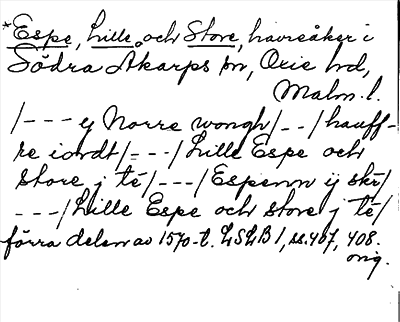 *Espe, Lille och Store, havreåker i
Södra Åkarps sn, Oxie hd,
Malm. l.
/--- ej Norre wongh/--/hauff-
re iordt/---/Lille Espe och
store j té/---/Espenn ij skr/
---/Lille Espe och store j té/
förra delen av 1570-t. LSLB 1, ss. 407, 408.
orig.